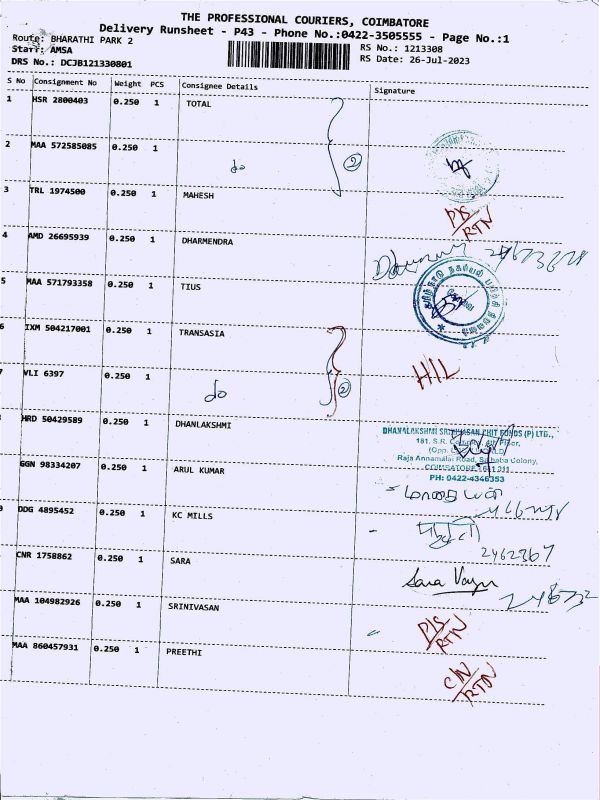 THE PROFESSIONAL COURIERS, COIMBATORE
Delivery Runsheet - P43 - Phone No.:0422-3505555 - Page No.:1
Route: BHARATHI PARK 2
RS No.: 1213308
Staff: AMSA
RS Date: 26-Jul-2023
DRS No.: DCJB121330801
S No Consignment No Weight PCS Consignee Details Signature
1 HSR 2800403 0.250 1 TOTAL
2 MAA 572585085 0.250 1 do 2
3 TRL 1974500 0.250 1 MAHESH
D/S RTN
4 AMD 26695939 0.250 1 DHARMENDRA
5 MAA 571793358 0.250 1 TIUS
6 IXM 504217001 0.250 1 TRANSASIA
VLI 6397 0.250 1 do 2 H/L
HRD 50429589 0.250 1 DHANLAKSHMI
DHANALAKSHMI SRINIVASAN CHIT FUNDS (P) LTD.,
181, S.R. Floor,
(Opp.
Raja Annamalai Road, Saibaba Colony,
COIMBATORE 641 011
PH: 0422-4346353
GGN 98334207 0.250 1 ARUL KUMAR
DDG 4895452 0.250 1 KC MILLS
2462367
CNR 1758862 0.250 1 SARA
Sara
MAA 104982926 0.250 1 SRINIVASAN
D/S RTN
MAA 860457931 0.250 1 PREETHI
C/N RTN